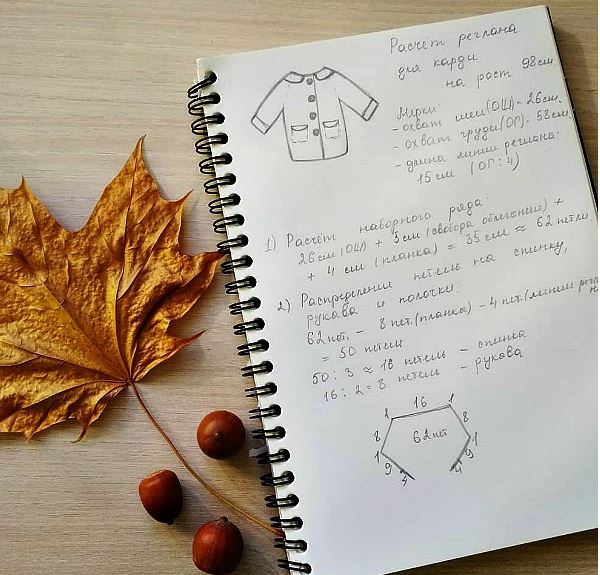 Расчёт реглана
для карди
на рост 98см
Мерки:
- охват шеи(ОШ)=26см.
- охват груди(ОГ)=58см.
- длина линии реглана:
15см (ОГ:4)
1) Расчёт наборного ряда:
26см(ОШ) + 5см(свобода облегания) +
+ 4 см (планка) = 35 см ≈ 62 петли
2) Распределим петель на спинку,
рукава и полочки:
62пет. - 8пет.(планка) - 4 пет.(линии
= 50 петель.
50:3 ≈ 16 петель - спинка
16:2=8 петель - рукава
1 16 1
8 62пет 8
1 1
9 9
4 4